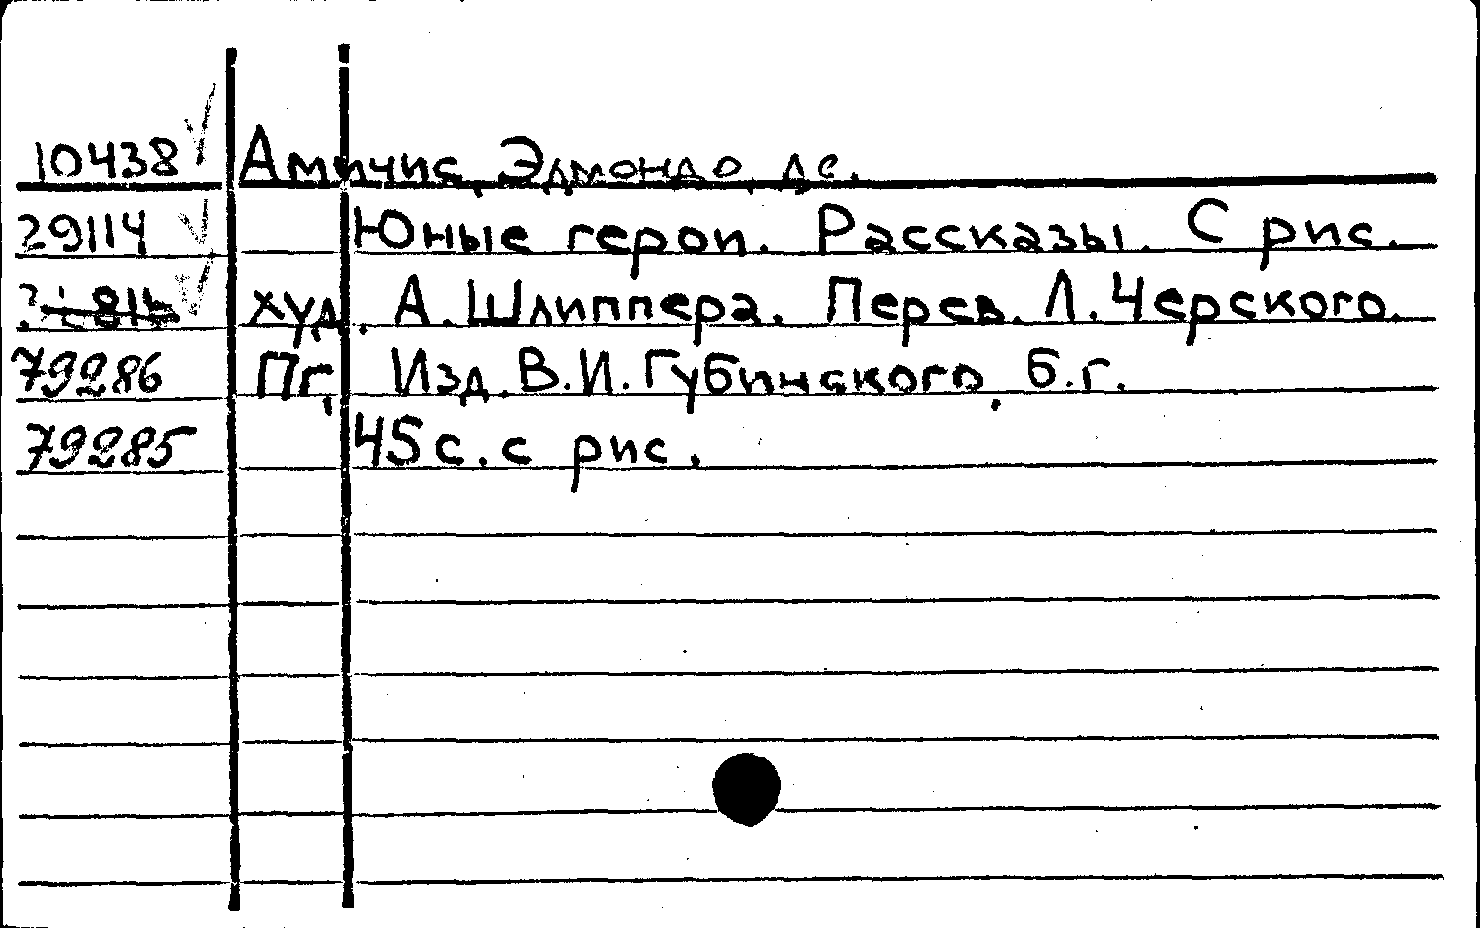 10438 Амичис, Эдмондо, де.
29114 Юные герои. Рассказы. С рис.
худ. А. Шлиппера. Перев. Л. Черского.
79286 Пг, Изд. В.И. Губинского, б.г.
79285 45 с. с рис.